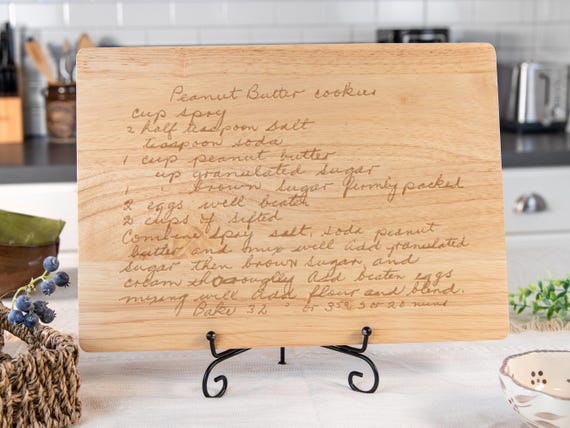 Peanut Butter cookies
cup spry
2 half teaspoon salt
teaspoon soda
1 cup peanut butter
up granulated sugar
1 " brown sugar firmly packed
2 eggs well beaten
2 cups sifted
Combine spry, salt, soda peanut
butter and mix well add granulated
sugar then brown sugar, and
cream thoroughly Add beaten eggs
mixing well add flour and blend.
Bake 32 or 35 20 mins